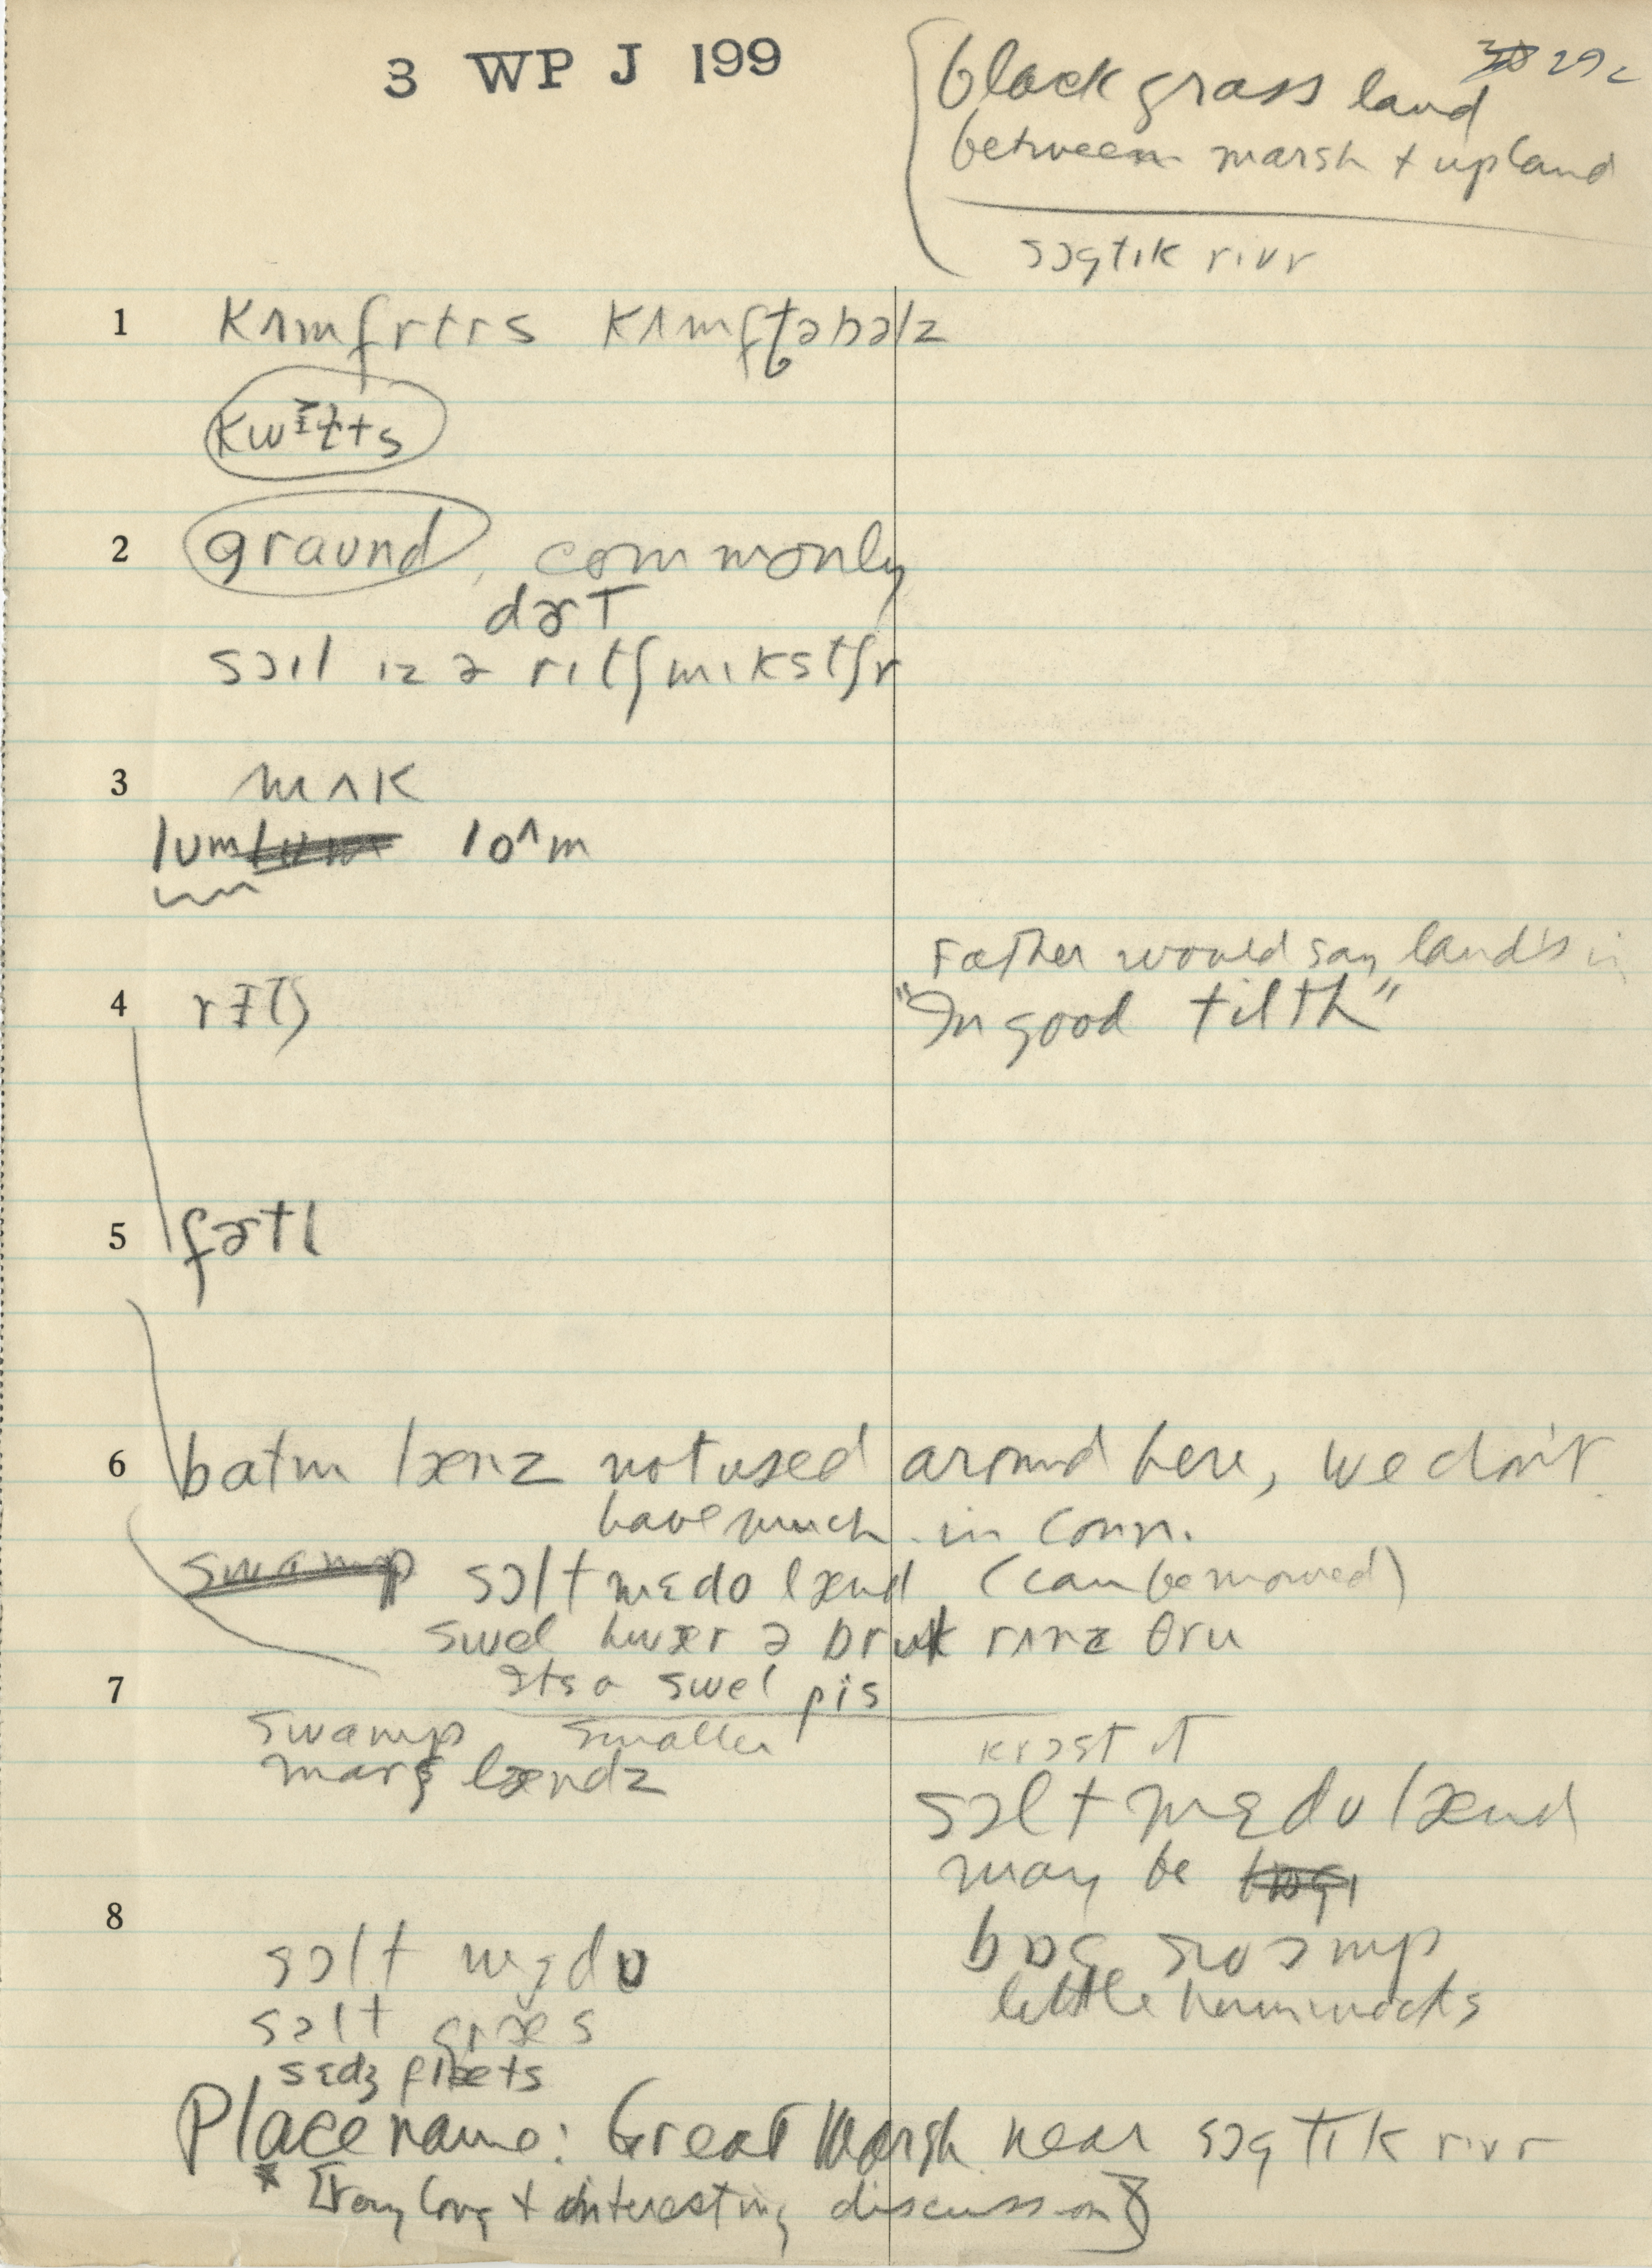 3 WP J 199
29c
black grass land
between marsh + upland
sɔgtɪk rɪvr
1 kʌmfrtrs kʌmfţəbəlz
kwɪɫts
2 graund, commonly
dɚT
sɔɪl ɪz ə rɪtʃ mɪkstʃr
3 mʌk
lum loʌm
Father would say land's in
4 rɪtʃ "In good tilth"
5 fɚtl
6 batm lænz not used around here, we don't
have much in Conn.
swamp sɔlt mɛdo lænd (can be mowed)
swel hwær ə bruk rʌnz θru
Its a swel pis
7
swamp smaller krɔst it
marʃ lændz
sɔlt mɛdo lænd
may be
8
bɒg swɔmp
sɔlt mɛdo
little hummocks
sɔlt græs
sɛdʒ flæts
Place name: Great Marsh near sɔgtɪk rɪvr
* [Very long + interesting discussion]